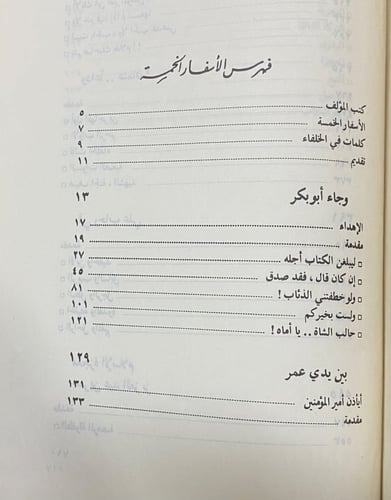 فهرس الأسفار الخمسة
كتب المؤلف ٥
الأسفار الخمسة ٧
كلمات في الخلفاء ٩
تقديم ١١
وجاء أبو بكر ١٣
الإهداء ١٧
مقدمة ١٩
ليبلغن الكتاب أجله ٢٧
إن كان قال ، فقد صدق ٤٥
ولو خطفتني الذئاب ! ٨١
ولست بخيركم ١٠١
حالب الشاة . . يا أماه ! ١٢١
بين يدي عمر ١٢٩
أيأذن أمير المؤمنين ١٣١
مقدمة ١٣٣